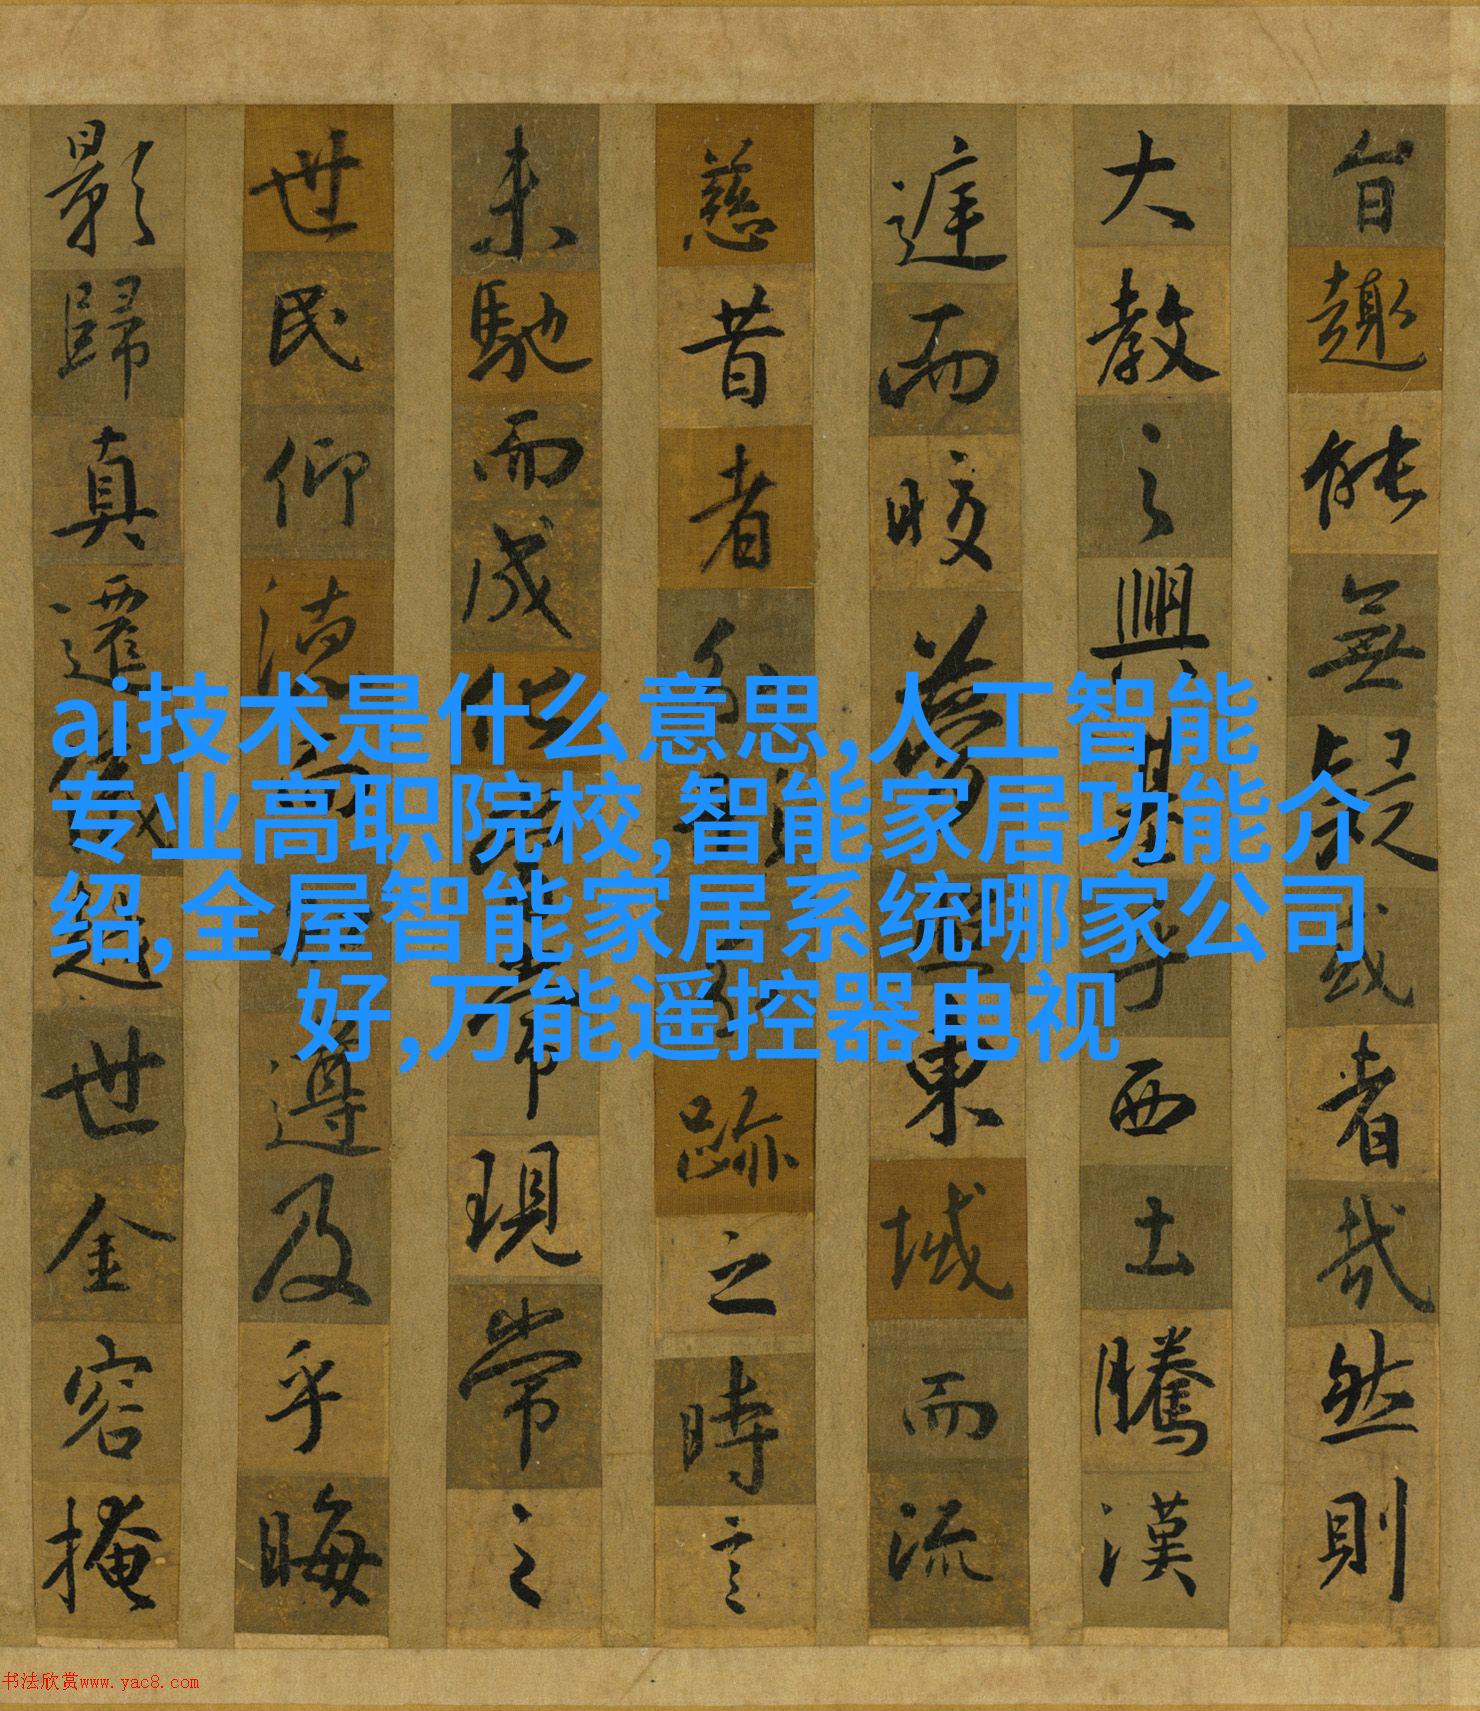 旨趣能無疑或者哉然則
大教之興基乎西土騰漢
庭而皎夢照東域而流
慈昔者分形分跡之時言
未馳而成化當常現常之
世民仰德而知遵及乎晦
影歸真遷儀越世金容掩
ai技术是什么意思,人工智能
专业高职院校,智能家居功能介
绍,全屋智能家居系统哪家公司
好,万能遥控器电视
书法欣赏www.yac8.com